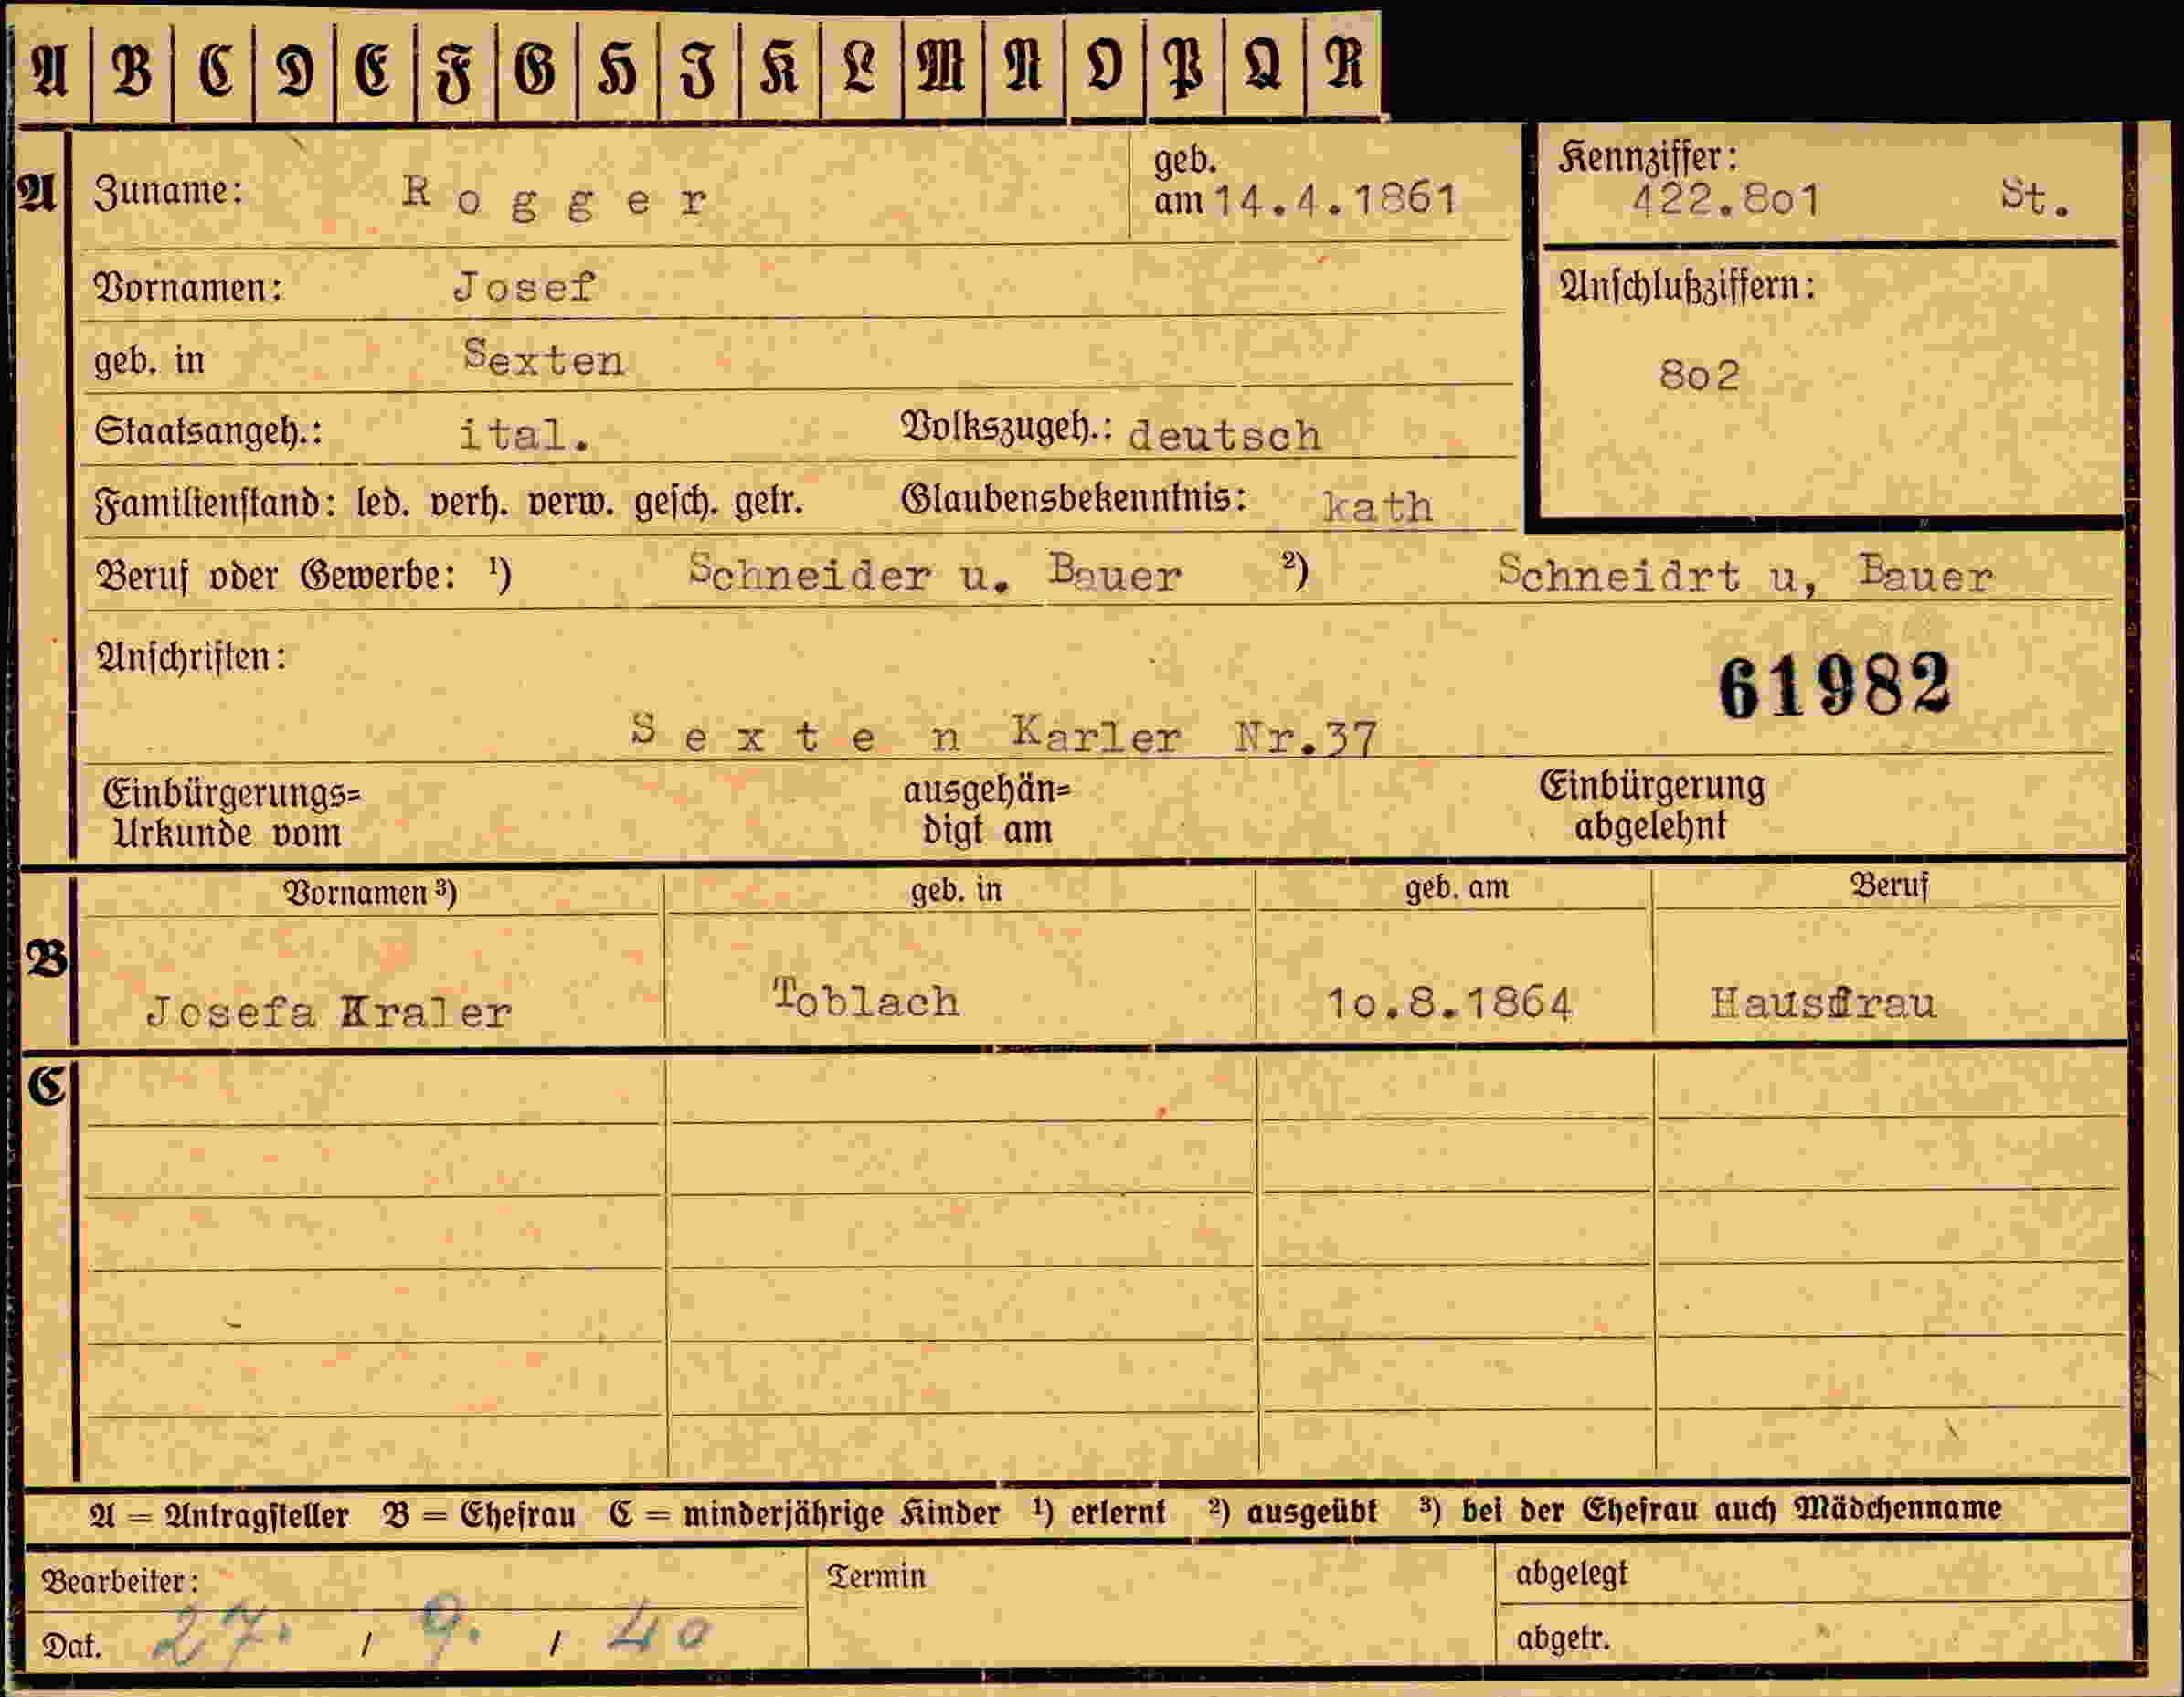 A B C D E F G H I K L M N O P Q R
A
Zuname: Rogger
geb.
am 14.4.1861
Kennziffer:
422.8o1 St.
Vornamen: Josef
Anschlußziffern:
geb. in Sexten
8o2
Staatsangeh.: ital. Volkszugeh.: deutsch
Familienstand: led. verh. verw. gesch. getr. Glaubensbekenntnis: kath
Beruf oder Gewerbe: ¹) Schneider u. Bauer ²) Schneidrt u, Bauer
Anschriften:
61982
Sexten Karler Nr.37
Einbürgerungs=
Urkunde vom
ausgehän=
digt am
Einbürgerung
abgelehnt
Vornamen ³) geb. in geb. am Beruf
B
Josefa Kraler Toblach 1o.8.1864 Hausfrau
C
A = Antragsteller B = Ehefrau C = minderjährige Kinder ¹) erlernt ²) ausgeübt ³) bei der Ehefrau auch Mädchenname
Bearbeiter: Termin abgelegt
Dat. 27. / 9. / 40 abgetr.